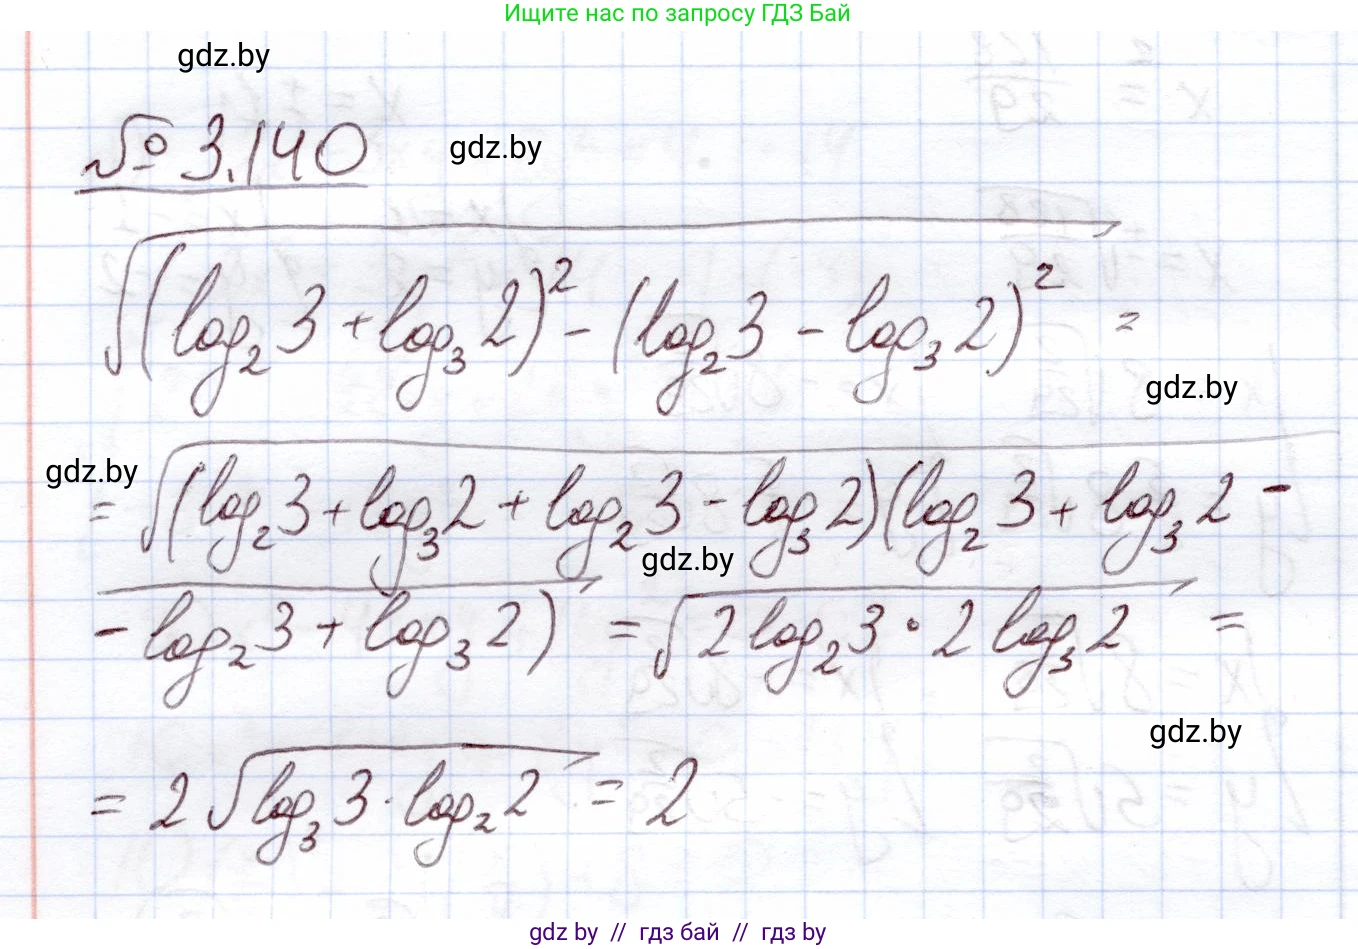 Ищите нас по запросу ГДЗ Бай
gdz.by
№ 3.140
gdz.by
√((log₂3 + log₃2)² - (log₂3 - log₃2)²) =
gdz.by
gdz.by
= √((log₂3 + log₃2 + log₂3 - log₃2)(log₂3 + log₃2 -
gdz.by
- log₂3 + log₃2) = √(2 log₂3 · 2 log₃2) =
gdz.by
= 2 √(log₃3 · log₂2) = 2
gdz.by // гдз бай // гдз by